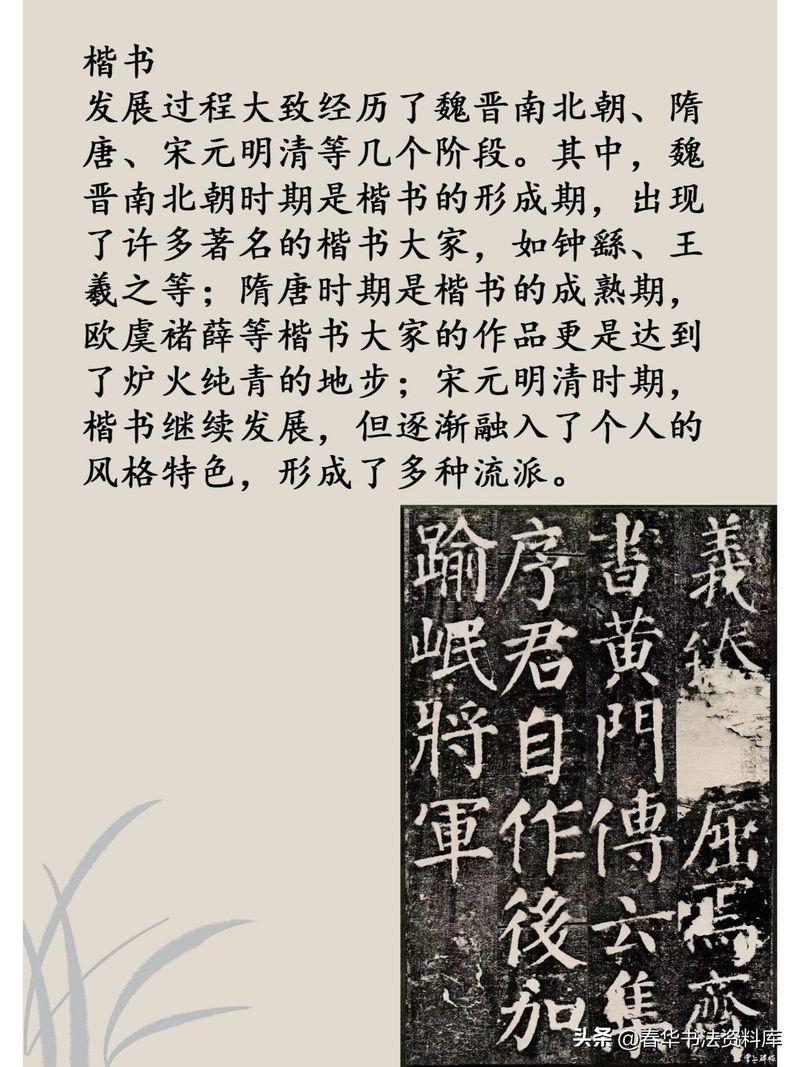 楷书
发展过程大致经历了魏晋南北朝、隋
唐、宋元明清等几个阶段。其中，魏
晋南北朝时期是楷书的形成期，出现
了许多著名的楷书大家，如钟繇、王
羲之等；隋唐时期是楷书的成熟期，
欧虞褚薛等楷书大家的作品更是达到
了炉火纯青的地步；宋元明清时期，
楷书继续发展，但逐渐融入了个人的
风格特色，形成了多种流派。
義 屈焉齋
書黄門傳云集
序君自作後加
踰岷將軍
头条 @春华书法资料库